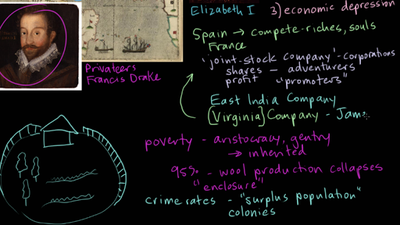 Elizabeth I 3) economic depression
Spain → compete-riches, souls
France
"joint-stock company"-corporations
shares - adventurers
profit "promoters"
Privateers
Francis Drake
East India Company
(Virginia) Company - Jam
poverty - aristocracy, gentry
→ inherited
95% - wool production collapses
"enclosure"
crime rates - "surplus population"
colonies